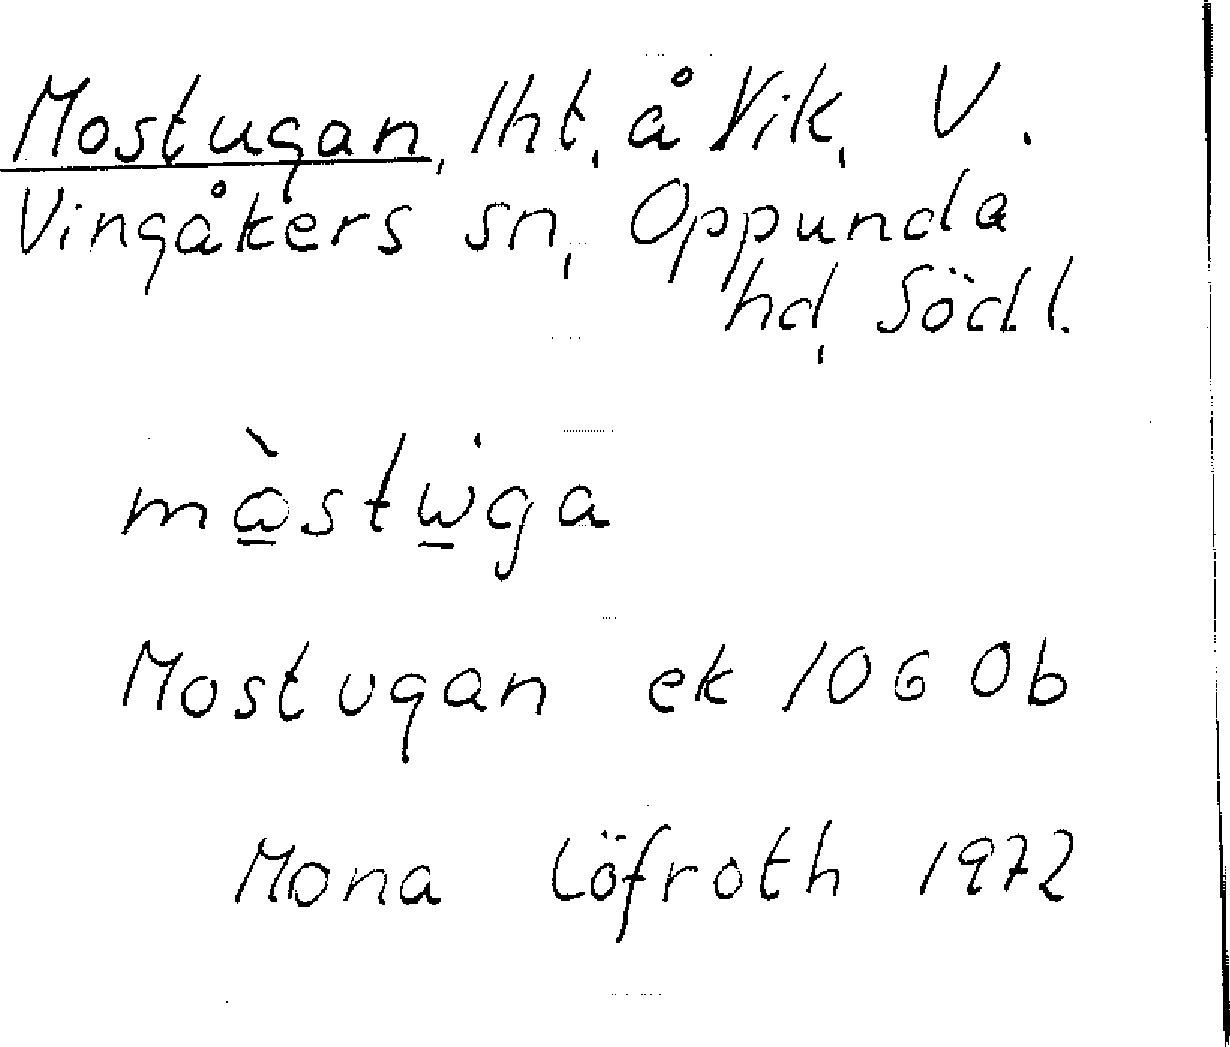 Mostugan, lht, å Vik, V.
Vingåkers sn, Oppunda
hd, Södl.
mòstẁga
Mostugan ek 10G 0b
Mona Löfroth 1972